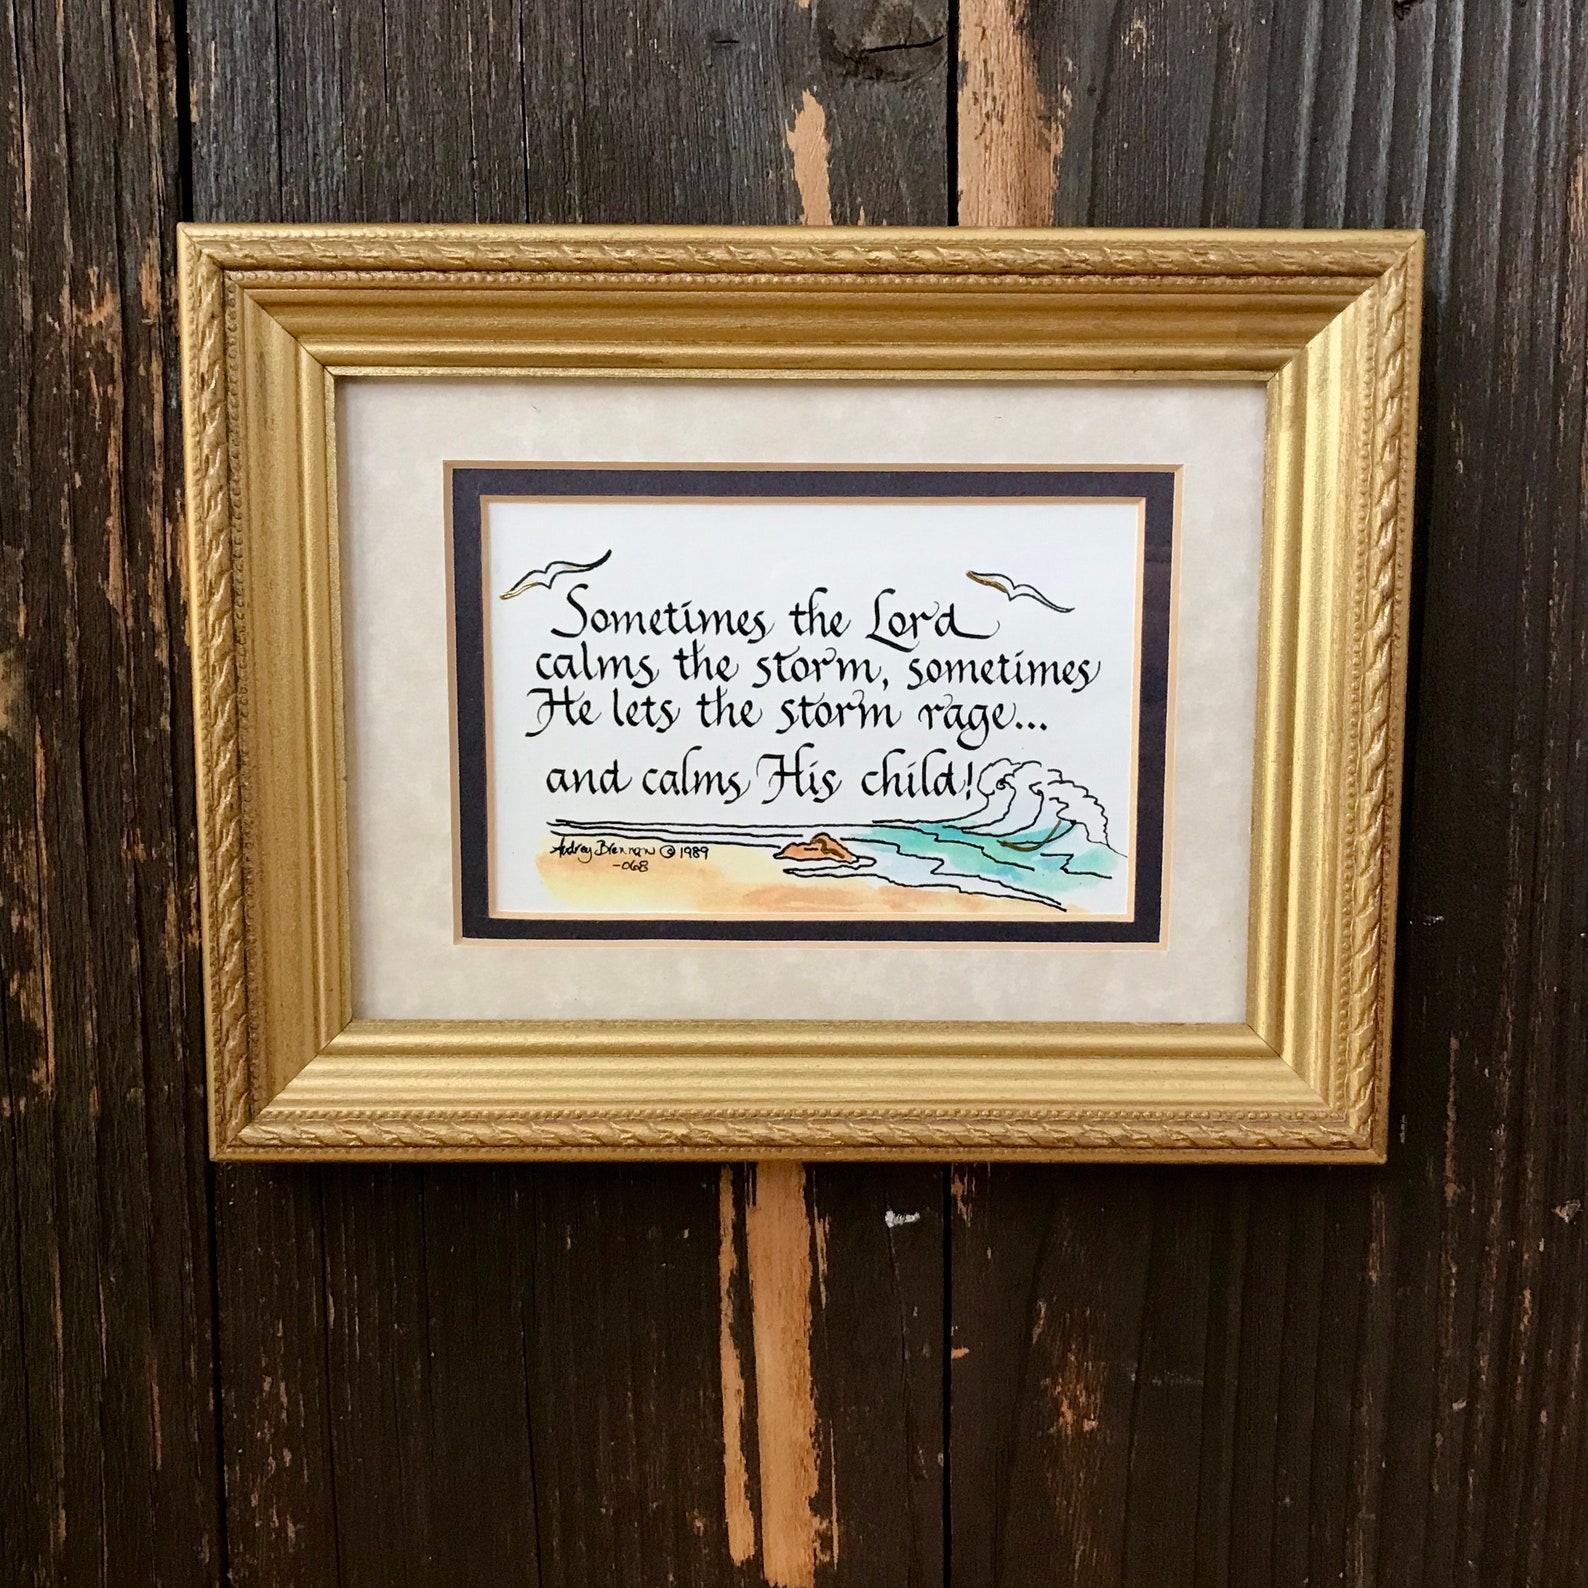 Sometimes the Lord
calms the storm, sometimes
He lets the storm rage...
and calms His child!
Audrey Brennan © 1989
-068